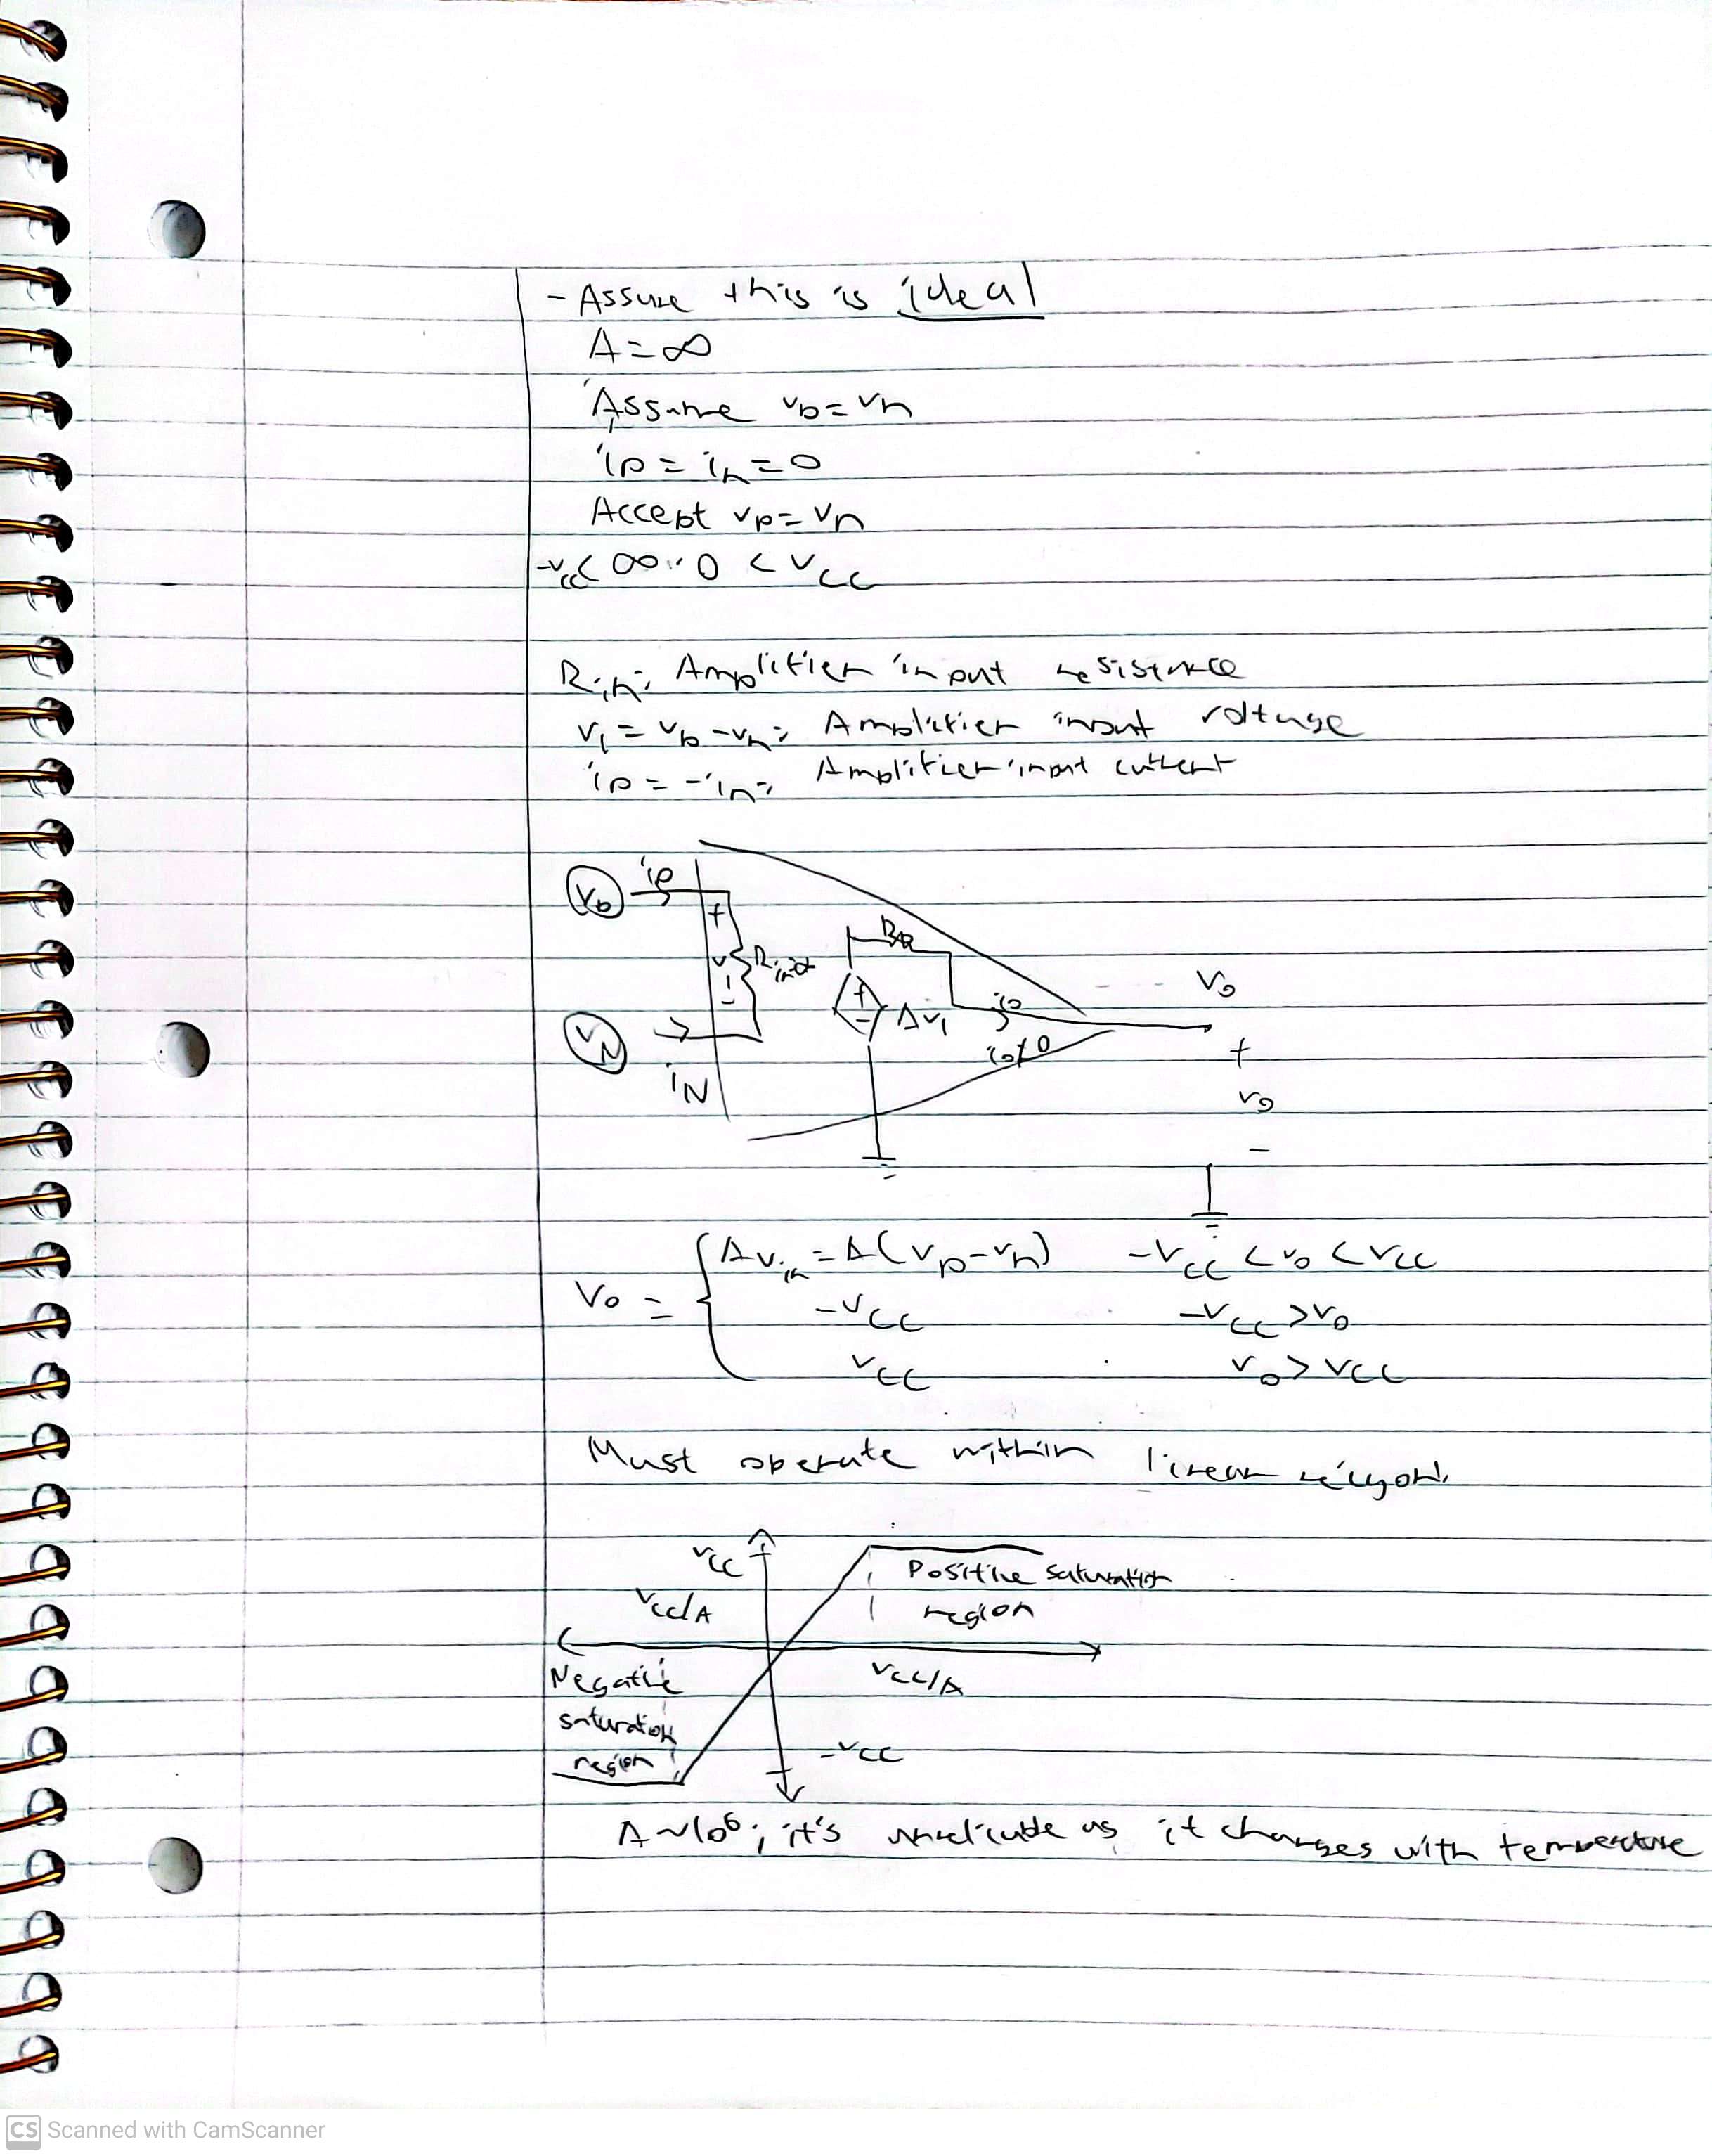 - Assume this is ideal
A = ∞
Assume vp = vn
ip = in = 0
Accept vp = vn
-vcc < ∞·0 < vcc
Rin: Amplifier input resistance
v1 = vp - vn: Amplifier input voltage
ip = -in: Amplifier input current
vp ip
+
v1 Rin
-
vN iN
+
-
Av1
io
io≠0
vo
+
vo
-
vo = { Avin = A(vp - vn) -vcc < vo < vcc
-vcc -vcc > vo
vcc vo > vcc
Must operate within linear region.
vcc
Positive saturation
vcc/A
region
Negative
vcc/A
saturation
region
-vcc
A ~ 10⁶; it's as it changes with temperature
CS Scanned with CamScanner